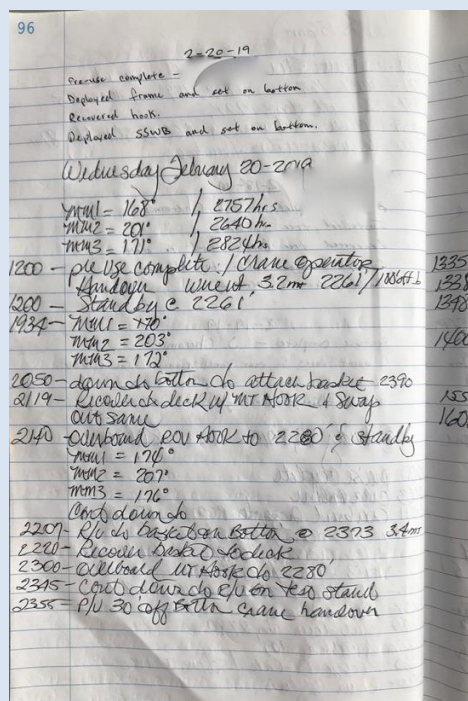 96
2-20-19
Pre-use complete -
Deployed frame and set on bottom
Recovered hook.
Deployed SSWB and set on bottom.
Wednesday February 20-2019
mm1 = 168° / 2757hrs
mm2 = 201° / 2640hr
mm3 = 171° / 2824hrs
1200 - pre use complete / Crane operator
Handover wire out 3.2mt 2261'/
1200 - Standby @ 2261'
1934 - mm1 = 170°
mm2 = 203°
mm3 = 172°
2050 - down to bottom to attach basket 2390
2119 - Recover to deck w/ MT HOOK & Swap
out same
2140 - Overboard ROV HOOK to 2280' & standby
mm1 = 174°
mm2 = 207°
mm3 = 176°
Cont down to
2207 - P/U to basket on Bottom @ 2373 3.4mt
2220 - Recover basket to deck
2300 - Overboard MT Hook to 2280'
2345 - Cont down to P/U on stand
2355 - P/U 30' off bottom crane handover
1335
1338
1340
1400
155
160